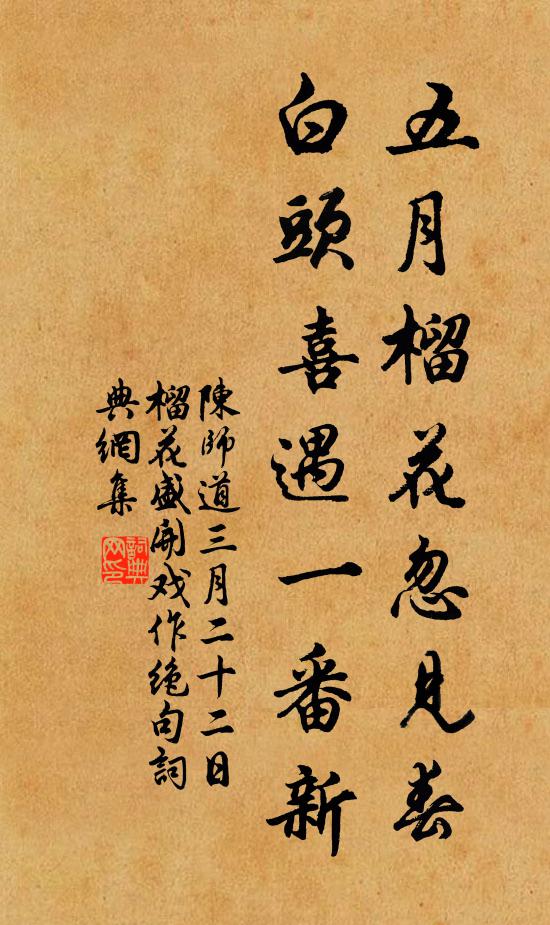 五月榴花忽見春
白頭喜遇一番新
陳師道三月二十二日
榴花盛開戏作绝句詞
典網集
詞典網印